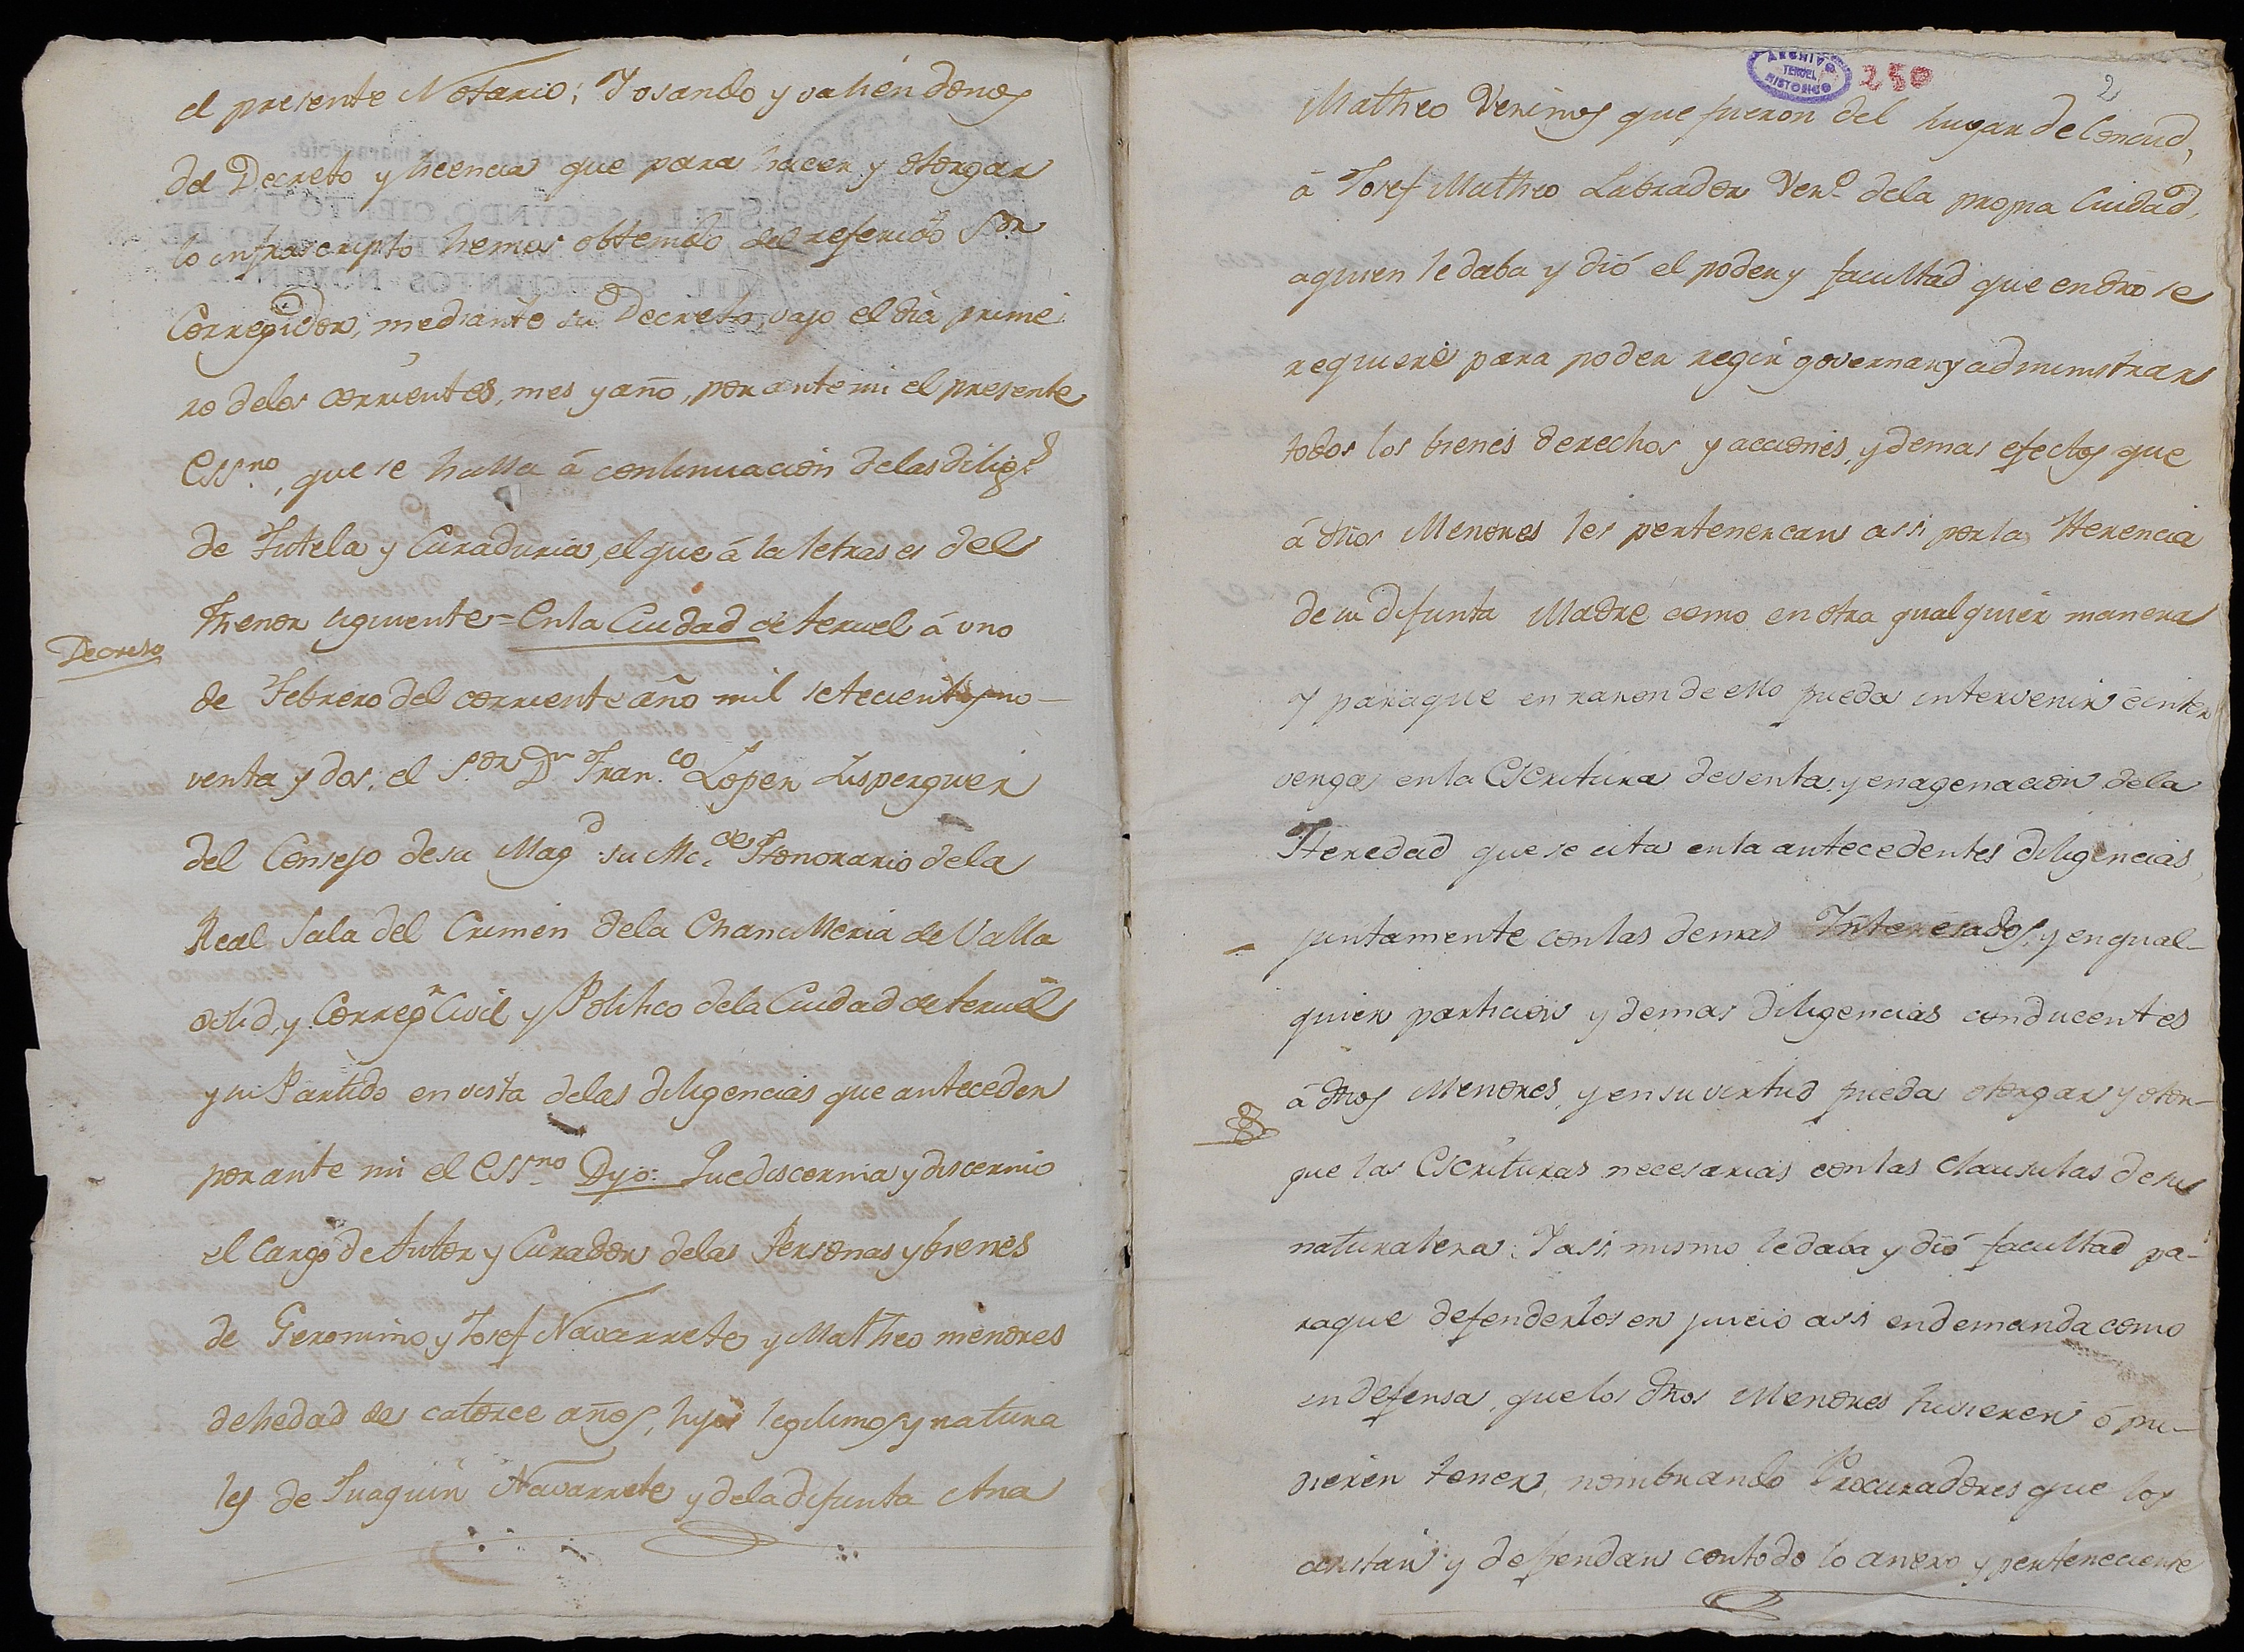 el presente Notario; Y osando y valiendonos
del Decreto y licencia que para hacer y otorgar
lo infrascripto hemos obtenido del referido S.or
Corregidor, mediante su Decreto, vajo el dia prime
ro delos corrientes, mes y año, por ante mi el presente
Ess.no, que se halla á continuacion delas dilig.s
de Tutela y Curaduria, el que á la letra es del
Decreto
thenor siguiente = En la Ciudad de teruel á uno
de Febrero del corriente año mil setecientos no-
venta y dos; el S.or D.n Fran.co Lopez Lisperguer
del Consejo de su Mag.d su Alc.de Honorario dela
Real Sala del Crimen dela Chancilleria de Valla
dolid, y Correg.r Civil y Politico dela Ciudad de teruel
y su Partido en vista delas diligencias que anteceden
por ante mi el Ess.no Dijo: Que discernia y discernio
el cargo de tutor y Curador delas Personas y bienes
de Geronimo y Josef Navarrete y Matheo menores
de hedad de catorce años, hijos legitimos y natura
les de Juaquin Navarrete y dela difunta Ana
ARCHIVO
TERUEL
HISTORICO
250
2
Matheo Vecinos que fueron del lugar de Concud,
á Josef Matheo Labrador Vec.o dela propia Ciudad,
aquien le daba y dió el poder y facultad que en dro se
requiere para poder regir governar y administrar
todos los bienes derechos y acciones, y demas efectos que
á dhos Menores les pertenezcan assi por la Herencia
de su difunta Madre como en otra qualquier manera
y paraque en razon de ello pueda intervenir é inter
venga en la Escritura de venta, y enagenacion dela
Heredad que se cita en la antecedentes diligencias,
juntamente con las demas Interesados, y en qual-
quier particion y demas diligencias conducentes
á dhos Menores, y en su virtud pueda otorgar y otor-
gue las Escrituras necesarias con las clausulas de su
naturaleza: Y assi mismo le daba y dió facultad pa-
raque defenderlos en juicio assi en demanda como
en defensa, que los dhos Menores tuvieren ó pu-
dieren tener, nombrando Procuradores que los
asistan y defiendan con todo lo anexo y perteneciente